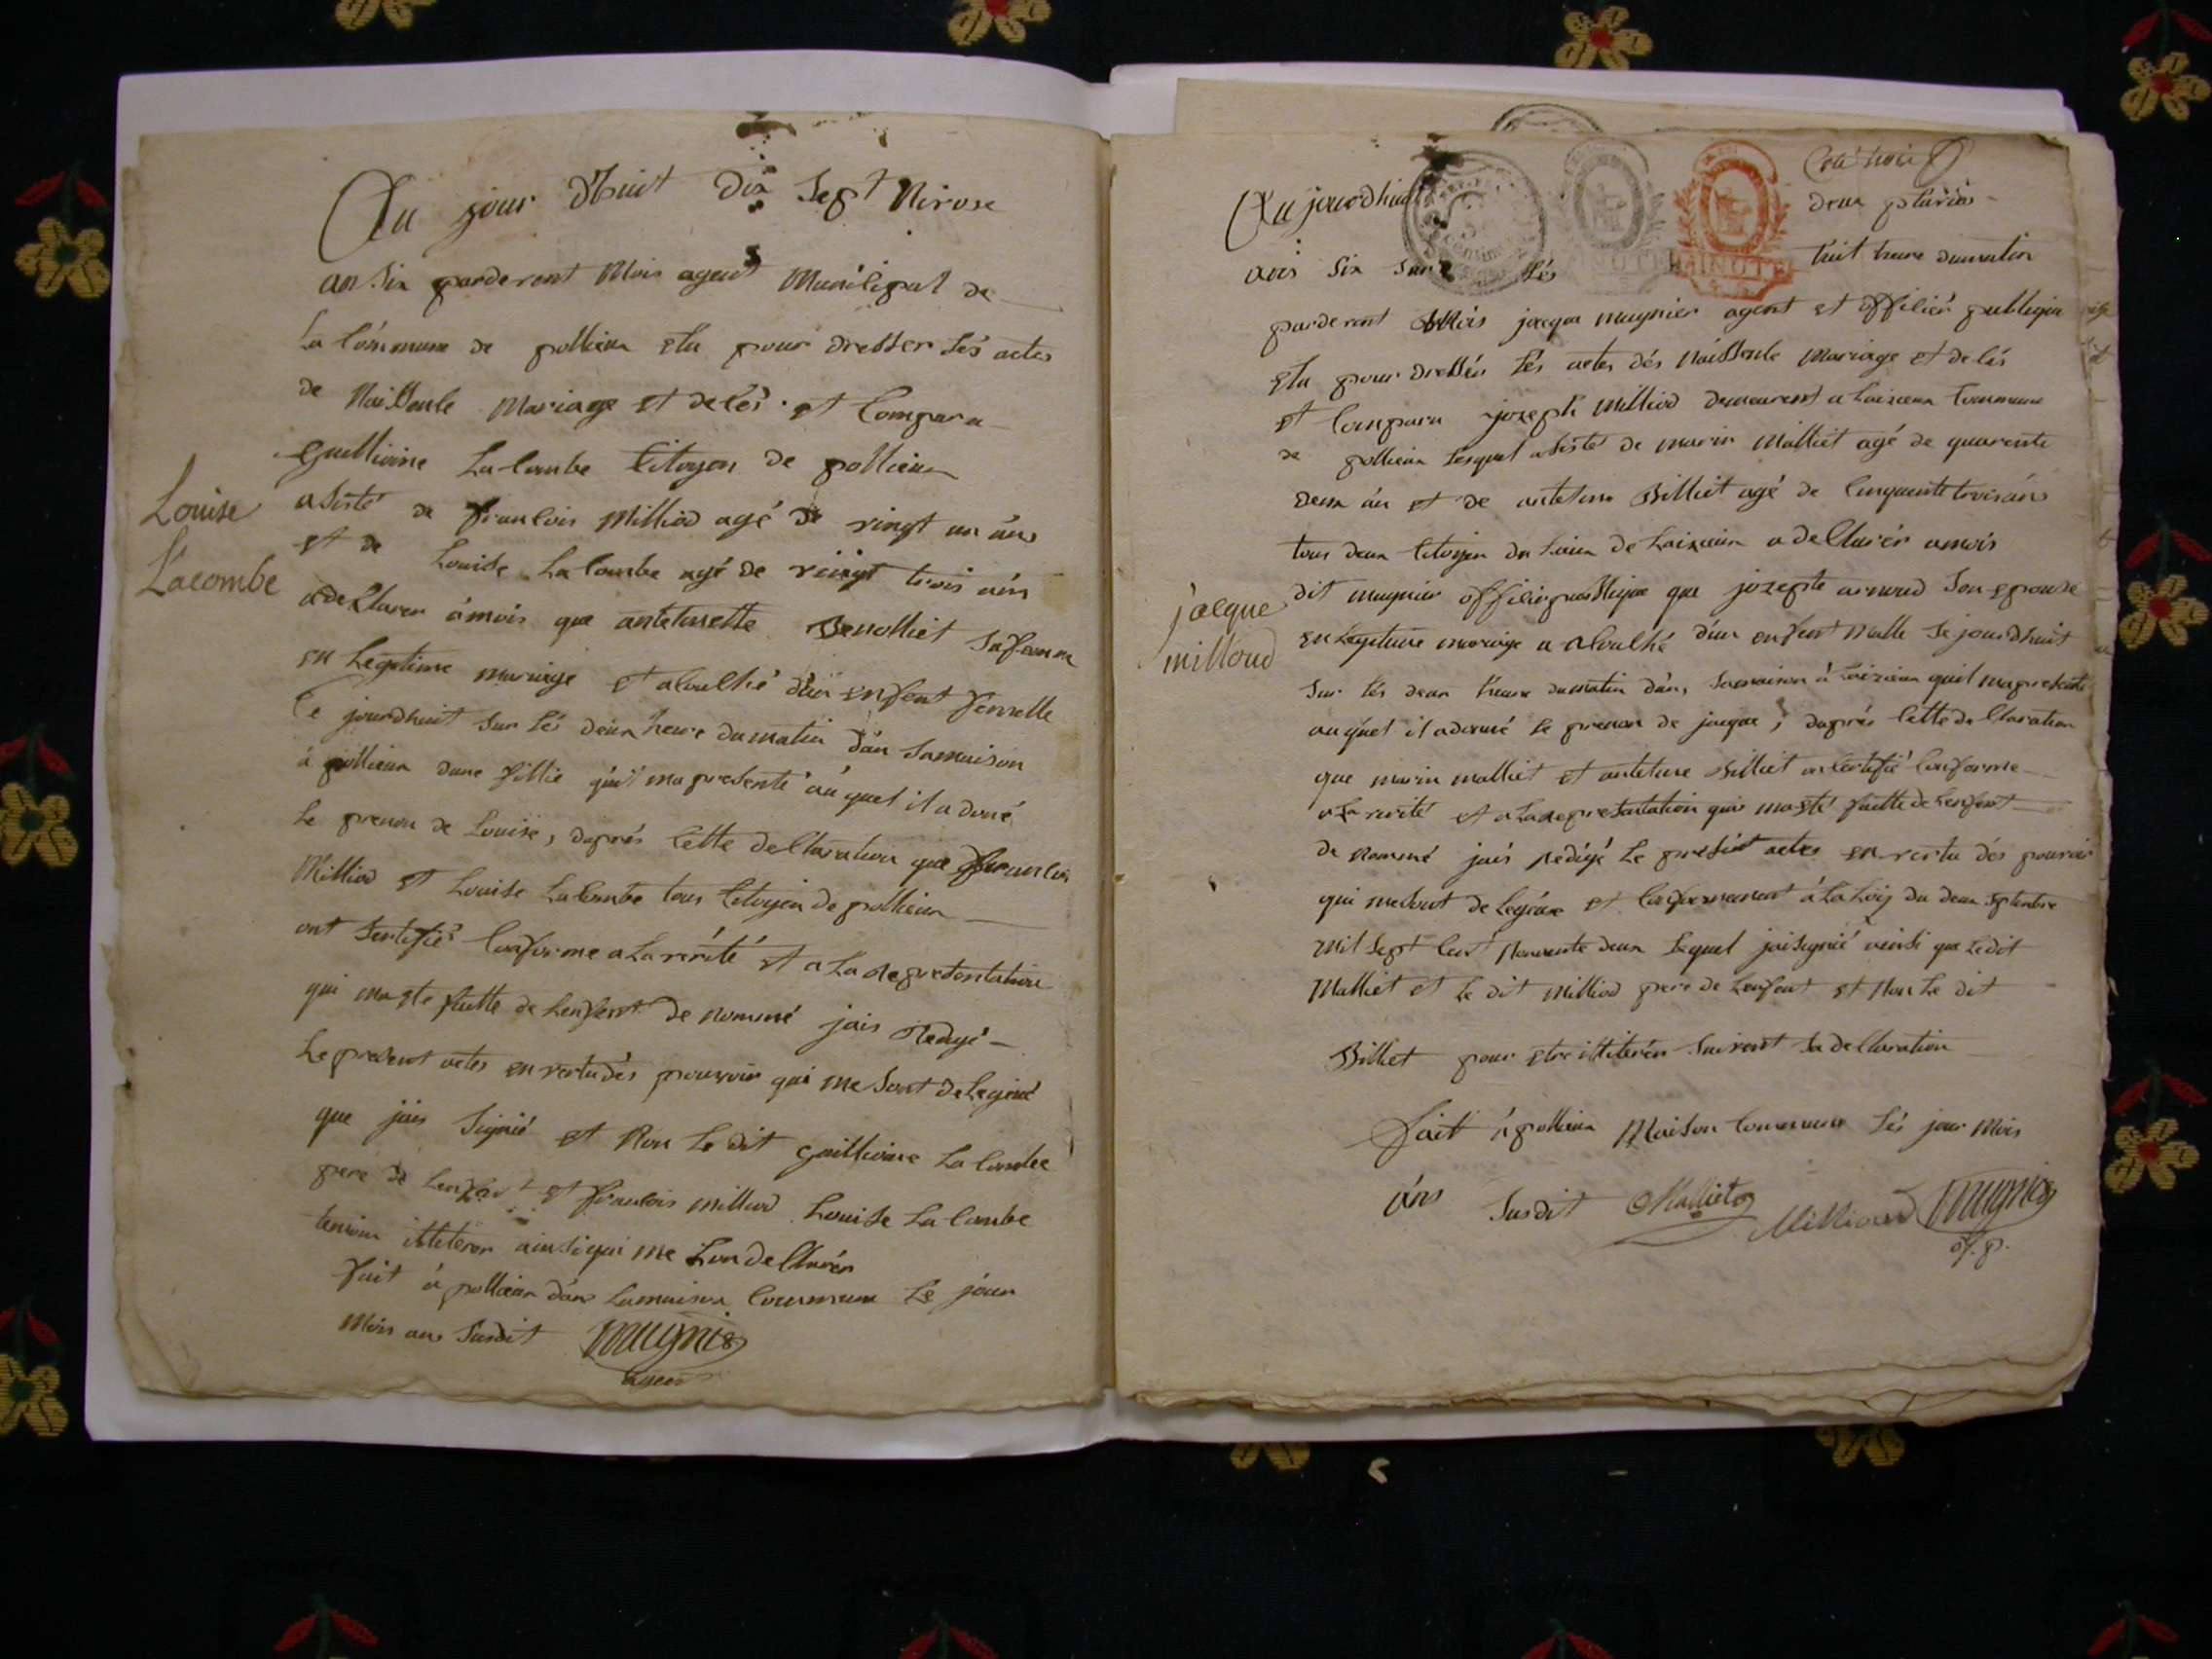 Au jour d'huit dix Sept Nivose
an Six parderent Mois agent Municipal de
La Commune de pollieu elu pour dresser les actes
de Naissence Mariage et decès et Comparu
guilliaume La Combe Citoyen de pollieu
asisté de francois Milliod agé de vingt un ans
et de Louise La Combe agé de vingt trois ans
Louise
Lacombe
a declarer à mois que antelmette Benolliet Safemme
en Legitime mariage et acouchée d'un enfent femelle
Ce jourdhuit Sur les deux heure du matin dan Samaison
à pollieu dune fillie qu'il ma presenté auquel il a doné
Le prenon de Louise, daprés Cette declaration que francois
Milliod et Louise LaCombe tous Citoyen de pollieu
ont Sertifié Conforme a La vérité et a La representation
qui ma eté faitte de Lenfent de nommé jais Redigé
Le present actes en vertu dés pouvoir qui me Sont delegué
que jais Signié et Non Le dit guilliaume La Combe
pere de Lenfent et francois milliod Louise La Combe
temoin illiteres ainsi qui me Lon declarér
fait à pollieu dans Lamaison Commune Le jour
Mois ans Susdit Mugnier
agent
Aujourdhuit deux pluvios
ans Six Sur les huit heure dumatin
MINUTE
parderent Mois jacque mugnier agent et officiér publique
elu pour dressér Lés actes dés Naissence Mariage et decés
et Comparu jozeph Milliod demeurent a Laizieu Commune
de pollieu Lesquel asisté de marin Malliet agé de quarente
deux an et de antelme Billiet agé de Cinquente trois ans
tous deux Citoyen du Lieu de Laizieu a declarér a mois
dit mugnier officier publique que jozepte arnoud Son epouse
jacque
milloud
en Legitime mariage a acouchée d'un enfent Malle Se jourdhuit
Sur Lés deux heure dumatin dan, Samaison à Laizieu quil ma presenté
au quel il a donné Le prenon de jacque, daprés Cette declaration
que marin malliet et antelme Billiet on Certifié Conforme
a La verité et a La representation qui ma eté faitte de Lenfent
de nommé jais redigé Le present actes en vertu dés pouvoir
qui me Sont delegué et Conformement à La Loij du deux Septembre
mil Sept Cent Nonvente deux Lequel jai Signié ainsi que Ledit
Malliet et Le dit Milliod pere de Lenfent et Non Le dit
Billiet pour etre illiterér Suivent Sa declaration
fait à pollieu Maison Commune Lés jour Mois
ans Susdit Malliet Millioud Mugnier
of. p.